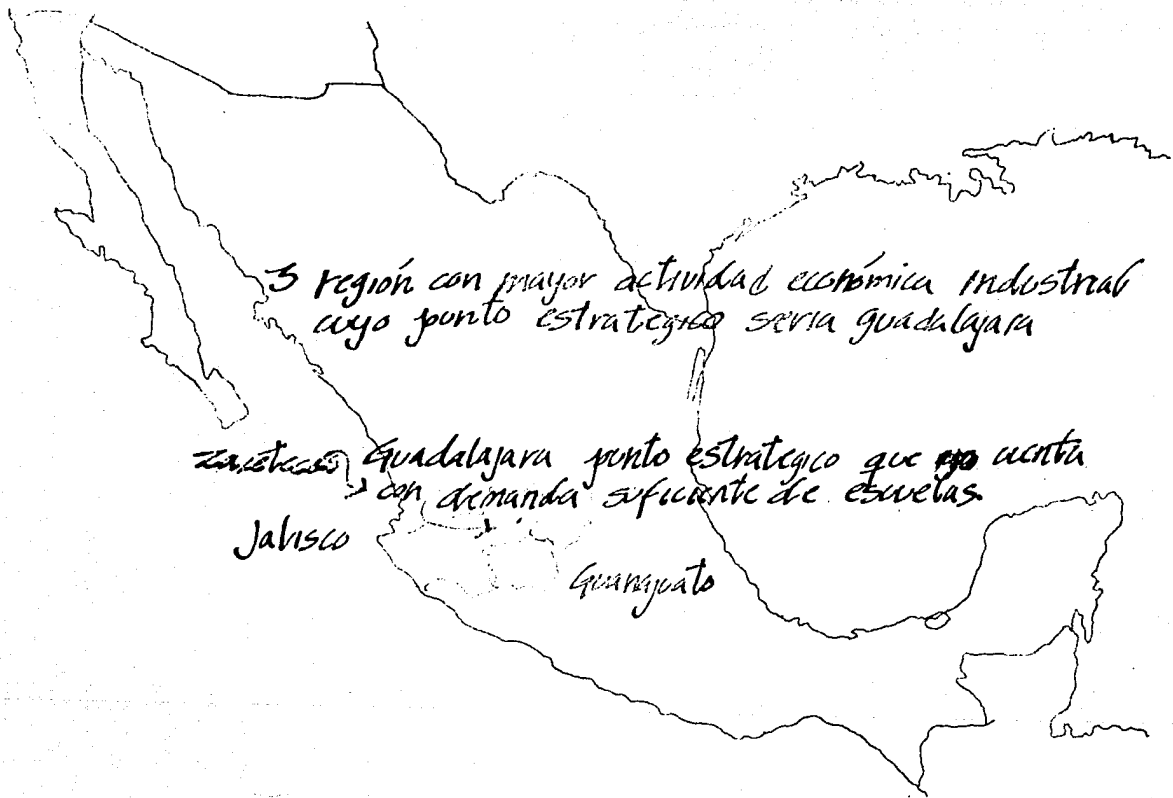 3 región con mayor actividad económica industrial
cuyo punto estrategico seria guadalajara
Guadalajara punto estrategico que cuenta
con demanda suficiente de escuelas.
Jalisco
Guanajuato